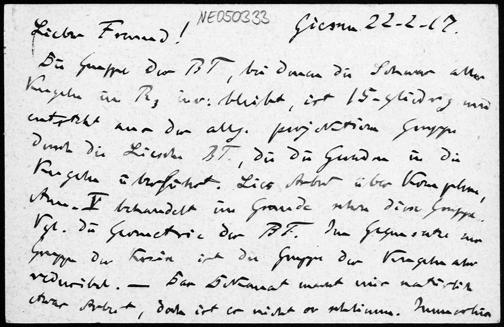 NE050333
Giessen 22-2-17.
Lieber Freund!
Die Gruppe der BT, bei denen die Schar aller
Kugeln im R3 inv. bleibt, ist 15-gliedrig und
entsteht aus der allg. projektiven Gruppe
durch die Liesche BT., die die Geraden in die
Kugeln überführt. Lies Arbeit über Komplexe,
Ann. V behandelt im Grunde schon diese Gruppe.
Vgl. die Geometrie der BT. Im Gegensatze zur
Gruppe der Kreise ist die Gruppe der Kugeln
reduzibel. — Das Dekanat macht mir natürlich
etwas Arbeit, doch ist es nicht so schlimm. Immerhin